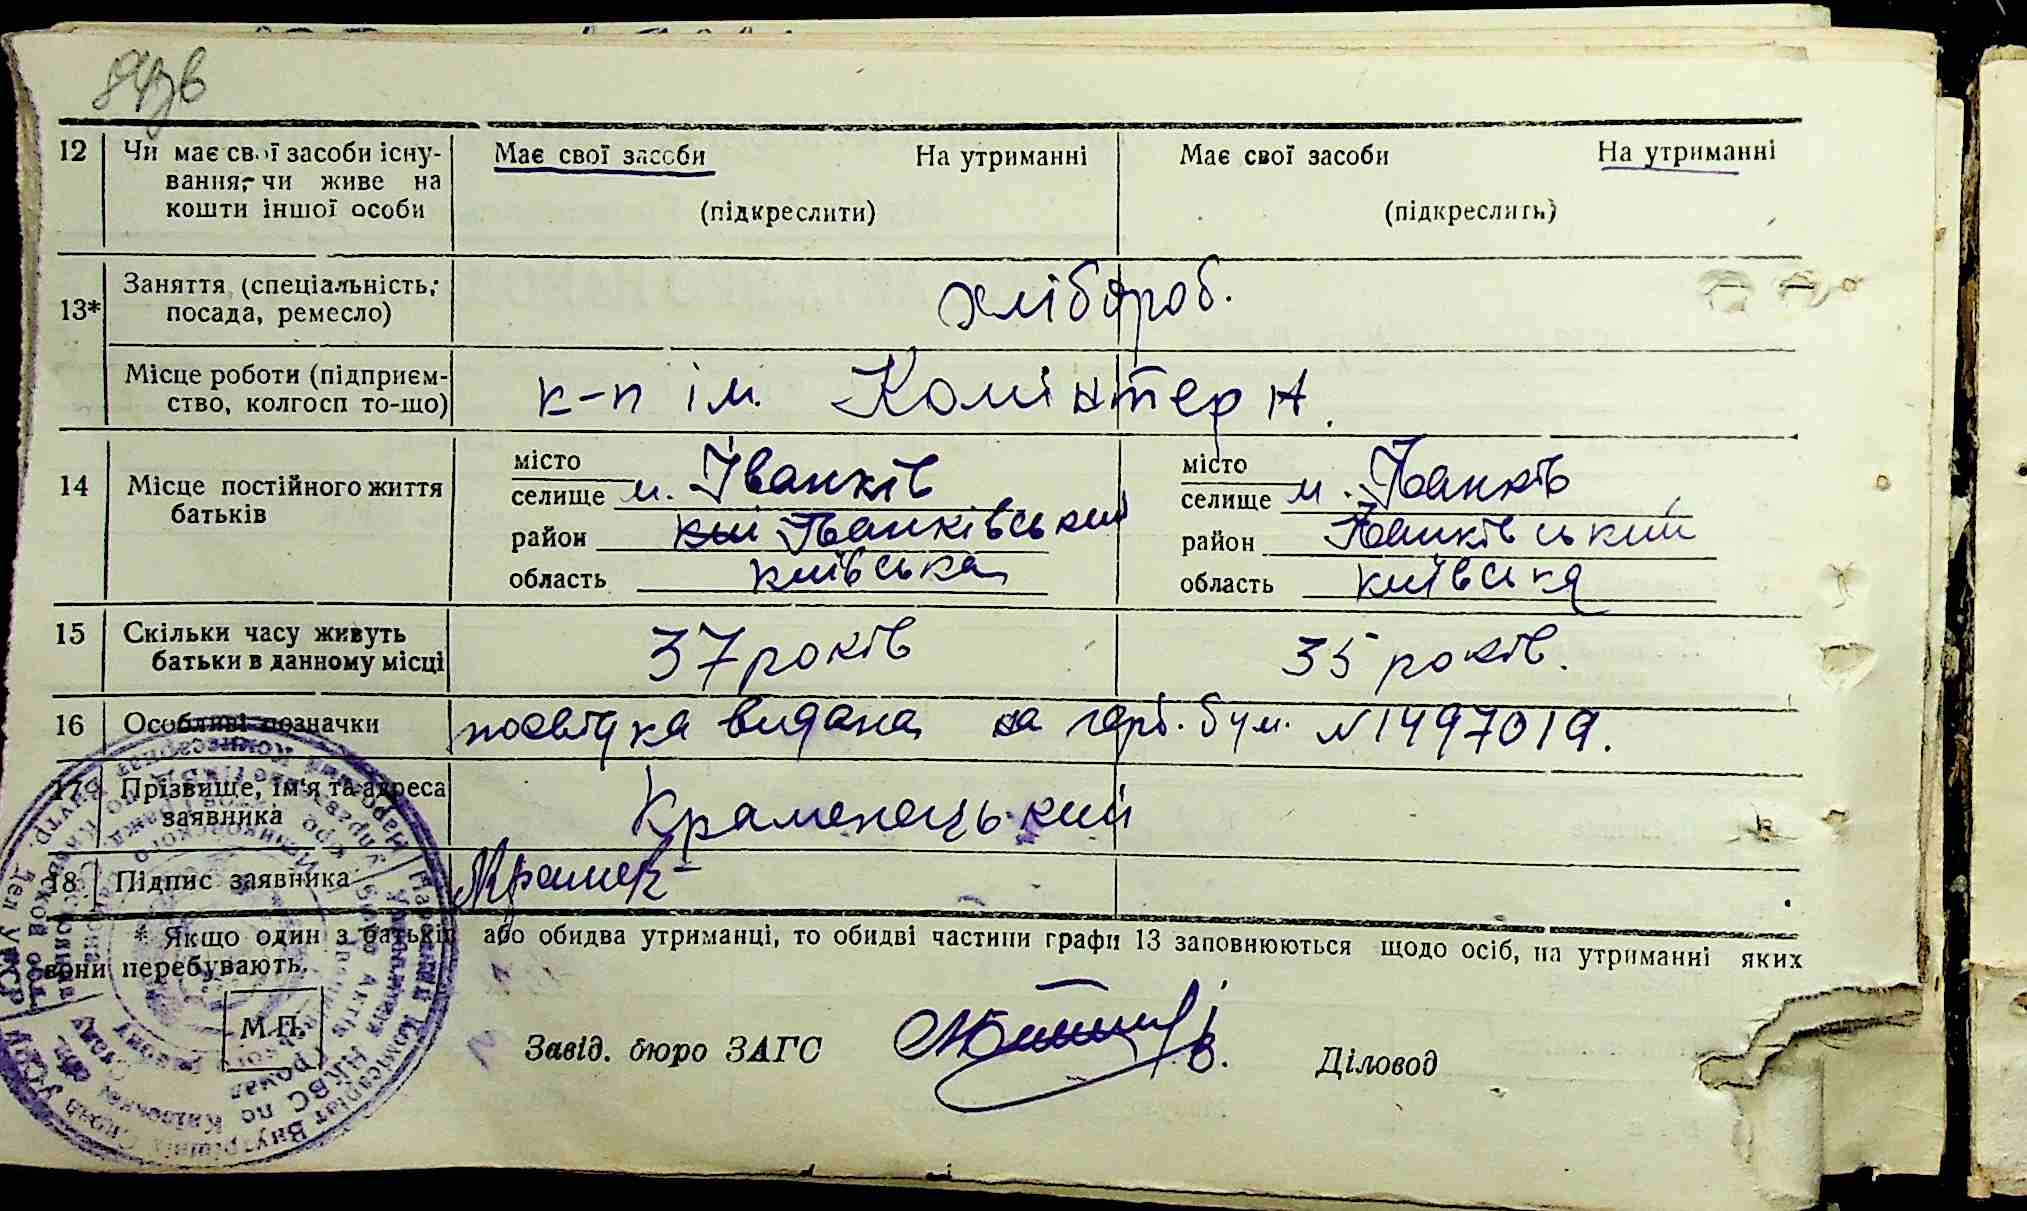 12 Чи має свої засоби існу- Має свої засоби На утриманні Має свої засоби На утриманні
вання, чи живе на
кошти іншої особи (підкреслити) (підкреслить)
13* Заняття (спеціальність, хлібороб.
посада, ремесло)
Місце роботи (підприєм- к-п ім. Комінтерн.
ство, колгосп то-що)
14 Місце постійного життя батьків
місто
селище м. Іванків
район Іванківський
область київська
місто
селище м. Іванків
район Іванківський
область київська
15 Скільки часу живуть 37 років 35 років.
батьки в данному місці
16 Особливі позначки посвідка видана на герб. бум. №1497019.
17 Прізвище, ім'я та адреса Краменецький
заявника
18 Підпис заявника Крамен-
* Якщо один з батьків або обидва утриманці, то обидві частини графи 13 заповнюються щодо осіб, на утриманні яких
вони перебувають.
М.П.
Завід. бюро ЗАГС Діловод